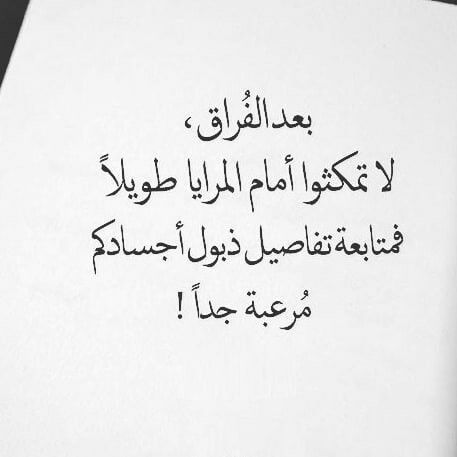 بعد الفُراق،
لا تمكثوا أمام المرايا طويلاً
فمتابعة تفاصيل ذبول أجسادكم
مُرعبة جداً !